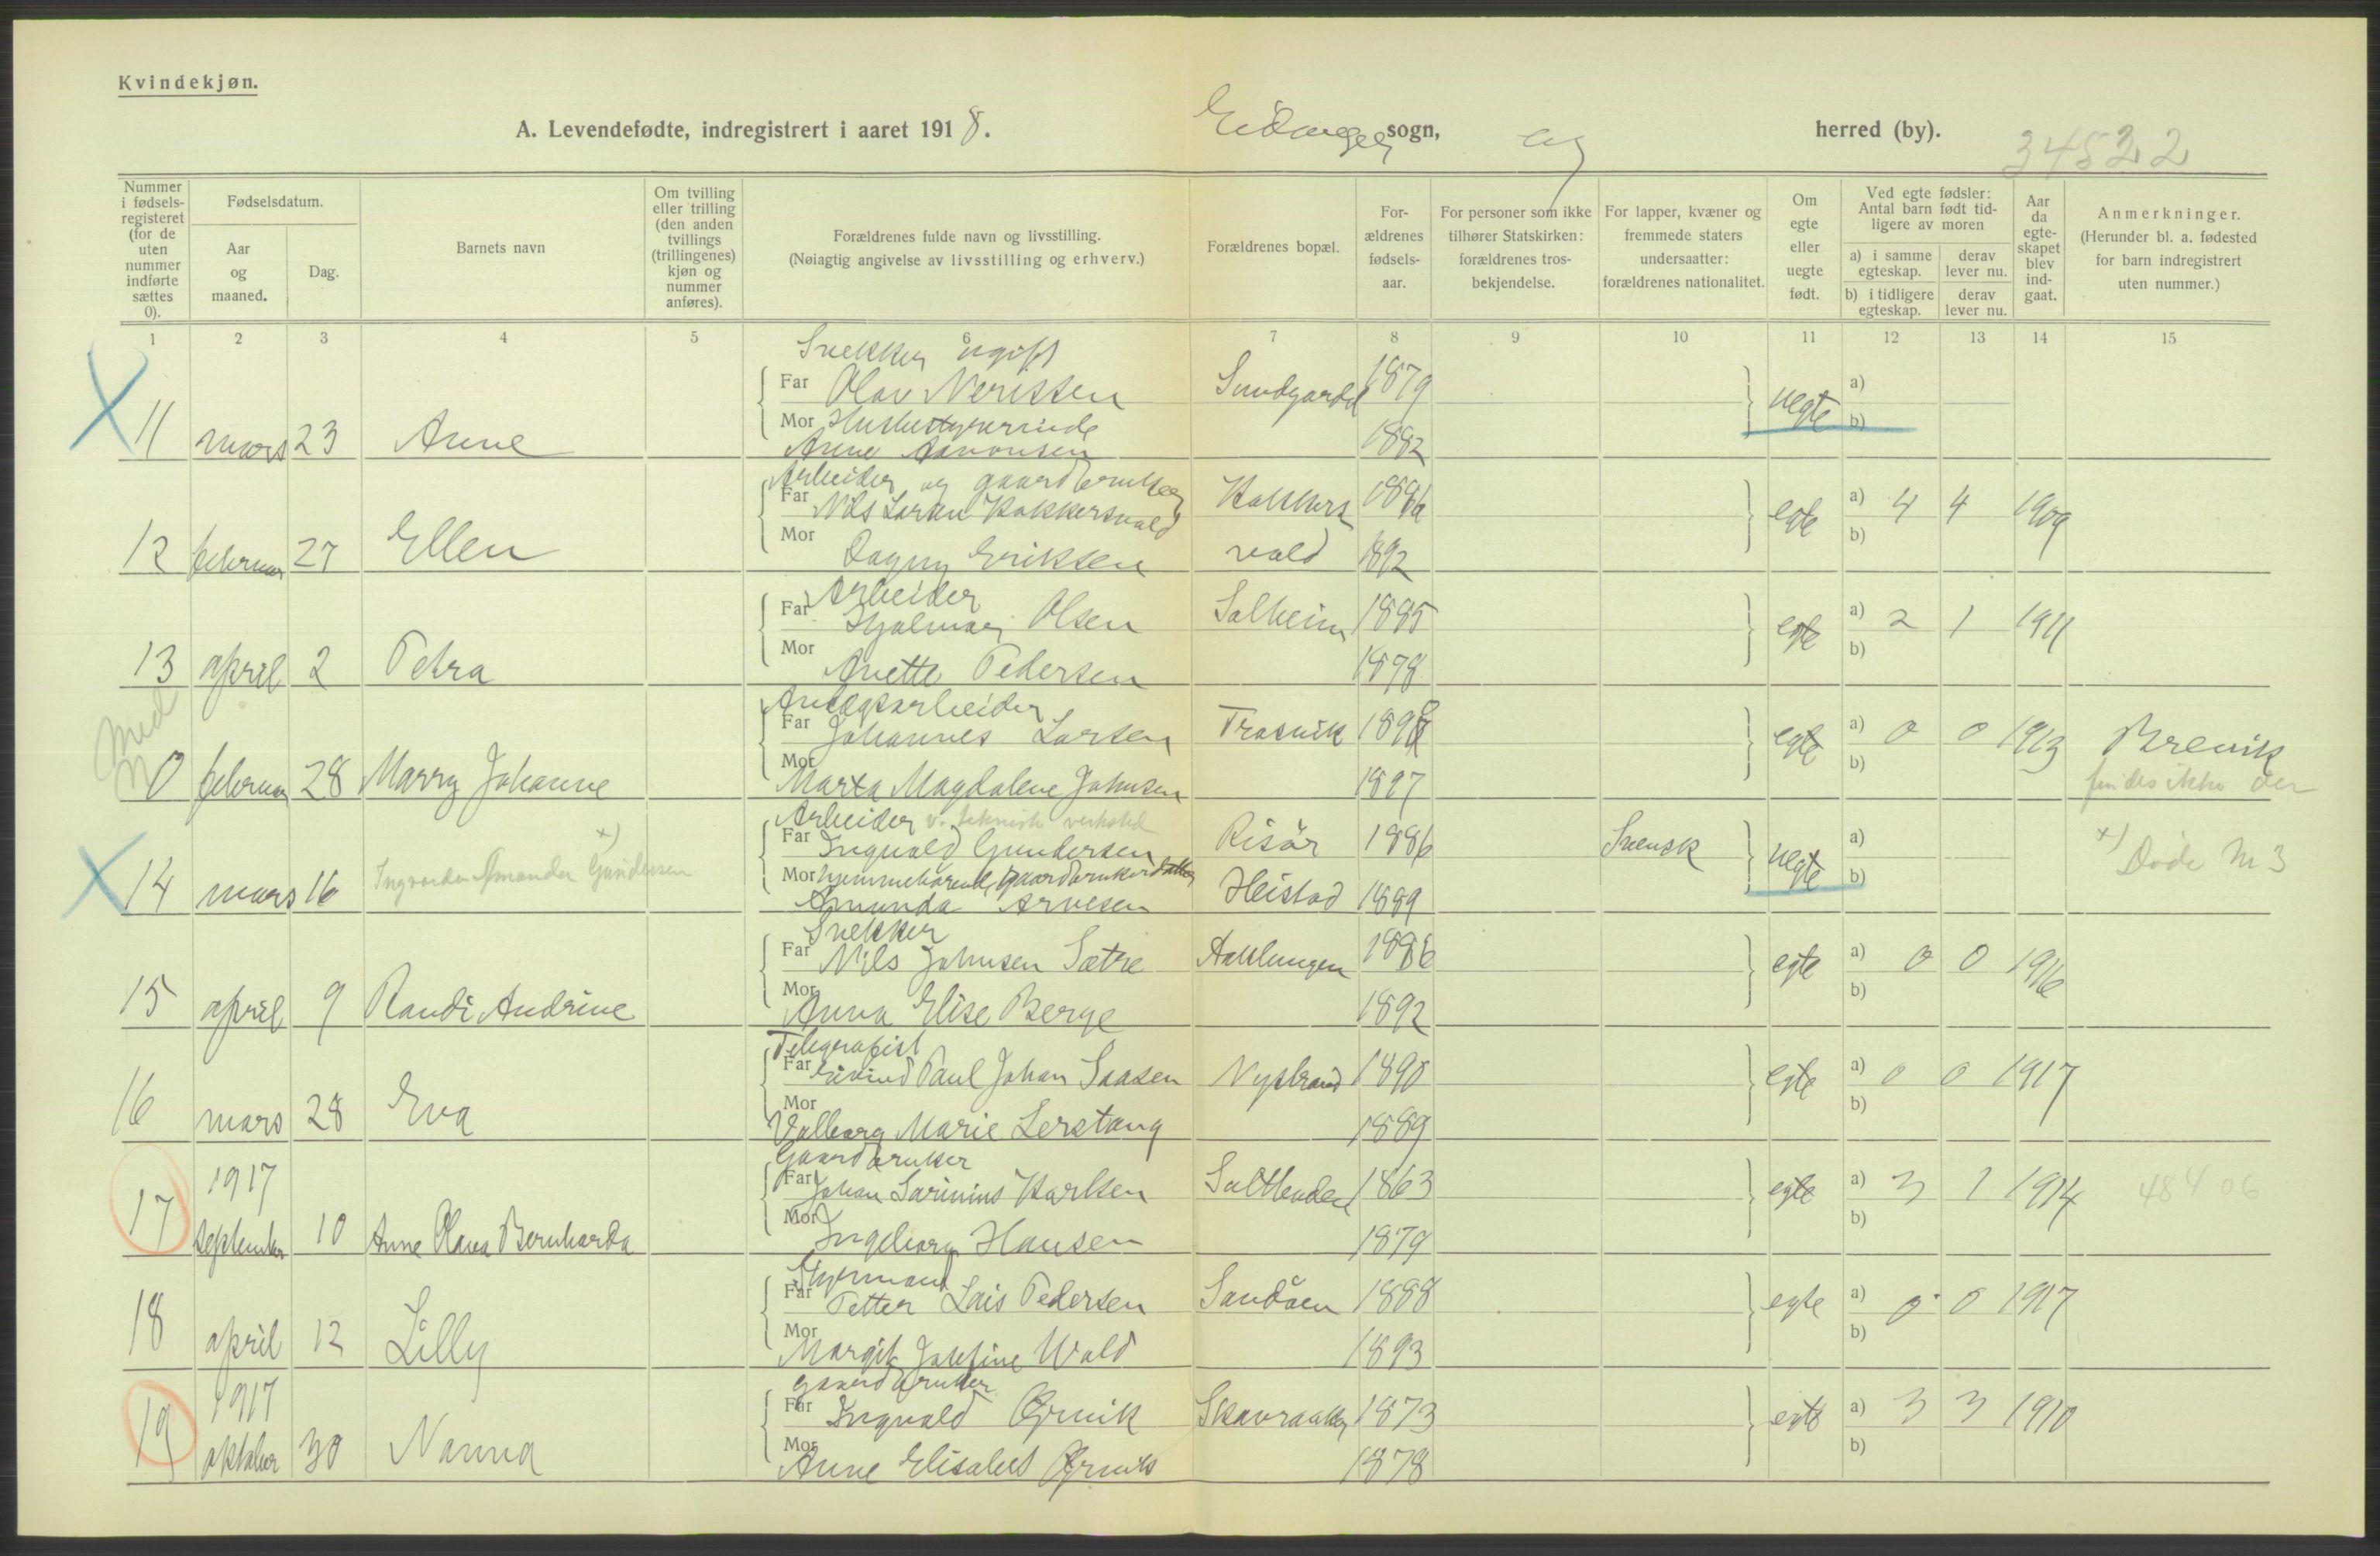 Kvindekjøn.
A. Levendefødte, indregistrert i aaret 1918. Eidanger sogn, og herred (by).
34522
Nummer i fødselsregisteret (for de uten nummer indførte sættes 0).
Fødselsdatum.
Aar og maaned.
Dag.
Barnets navn
Om tvilling eller trilling (den anden tvillings (trillingenes) kjøn og nummer anføres).
Forældrenes fulde navn og livsstilling.
(Nøiagtig angivelse av livsstilling og erhverv.)
Forældrenes bopæl.
Forældrenes fødselsaar.
For personer som ikke tilhører Statskirken: forældrenes trosbekjendelse.
For lapper, kvæner og fremmede staters undersaatter: forældrenes nationalitet.
Om egte eller uegte født.
Ved egte fødsler: Antal barn født tidligere av moren
a) i samme egteskap. derav lever nu.
b) i tidligere egteskap. derav lever nu.
Aar da egteskapet blev indgaat.
Anmerkninger.
(Herunder bl. a. fødested for barn indregistrert uten nummer.)
1 2 3 4 5 6 7 8 9 10 11 12 13 14 15
Snekker ugift
Far Olav Nerissen Sundgardd 1879 uegte a)
Mor Husbestyrerinde b)
X 11 mars 23 Anne Anne Aanonsen 1882
Arbeider og gaardbruker
Far Nils Larsen Kokkersvold Kokkers 1886 egte a) 4 4 1909
Mor b)
12 februar 27 Ellen Dagny Eriksen vold 1892
Arbeider
Far Hjalmar Olsen Solheim 1885 egte a) 2 1 1911
Mor b)
13 april 2 Petra Anette Pedersen 1878
Med
Anlægsarbeider
Far Johannes Larsen Trosvik egte a) 0 0 1913 Brevik
Mor b) findes ikke der
0 februar 28 Marry Johanne Marta Magdalene Johnsen 1897
Arbeider v. teknisk verksted
Far Ingvald Gundersen Risör 1886 Svensk uegte a) x) Döde Nr 3
Mor hjemmeværende, gaardbrukerdatter b)
X 14 mars 16 Ingvarda Amanda Gundersen x) Amunda Arvesen Heistad 1889
Snekker
Far Nils Johnsen Sætre Aaklungen 1886 egte a) 0 0 1916
Mor b)
15 april 9 Randi Andrine Anna Elise Berge 1892
Telegrafist
Far Eivind Paul Johan Saasen Nystrand 1890 egte a) 0 0 1917
Mor b)
16 mars 28 Eva Valborg Marie Lerstang 1889
Gaardbruker
1917 Far Johan Sarinius Karlsen 1863 egte a) 3 1 1914 48406
Mor b)
17 september 10 Anne Olava Bernharda Ingeborg Hansen 1879
Styrmand
Far Petter Lais Pedersen Sandöen 1888 egte a) 0 0 1917
Mor b)
18 april 12 Lilly Margit Josefine Wold 1893
gaardbruker
1917 Far Ingvald Ørvik Skavraaker 1873 egte a) 3 3 1910
Mor b)
19 oktober 30 Nanna Anne Elisabet Ørvik 1878